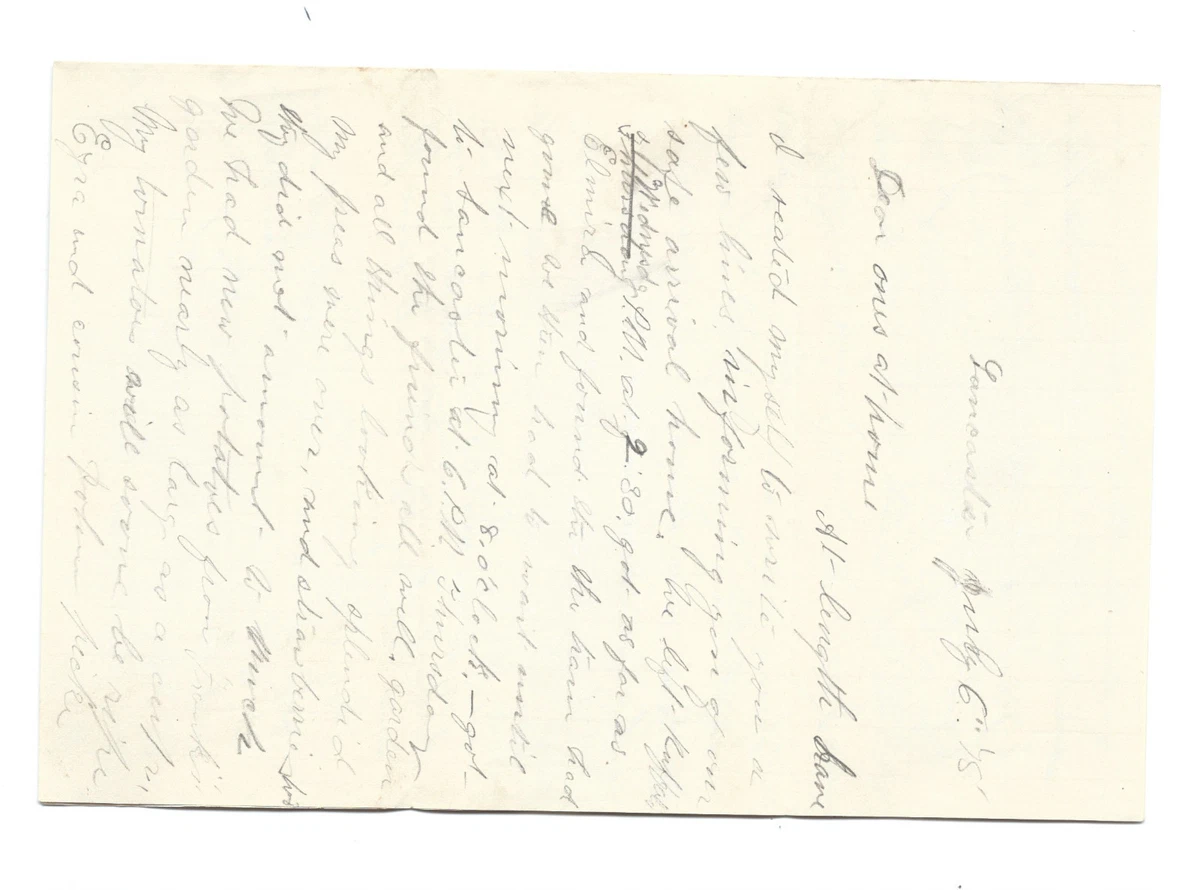 Lancaster July 6th '5
Dear ones at home
At length have
I seated myself to write you a
few lines, informing you of our
safe arrival home. We left
Wednesday P.M. at 2.30, got as far as
Elmira and found the the train had
gone we then had to wait until
next morning at 8. oclock, — got
to Lancaster at 6. P.M. Thursday
found the friends all well, garden
and all things looking splendid
My peas were over, and strawberries
they did not amount to much
We had new potatoes from
garden nearly as large as a
My tomatoes will soone be ripe.
Ezra and cousin